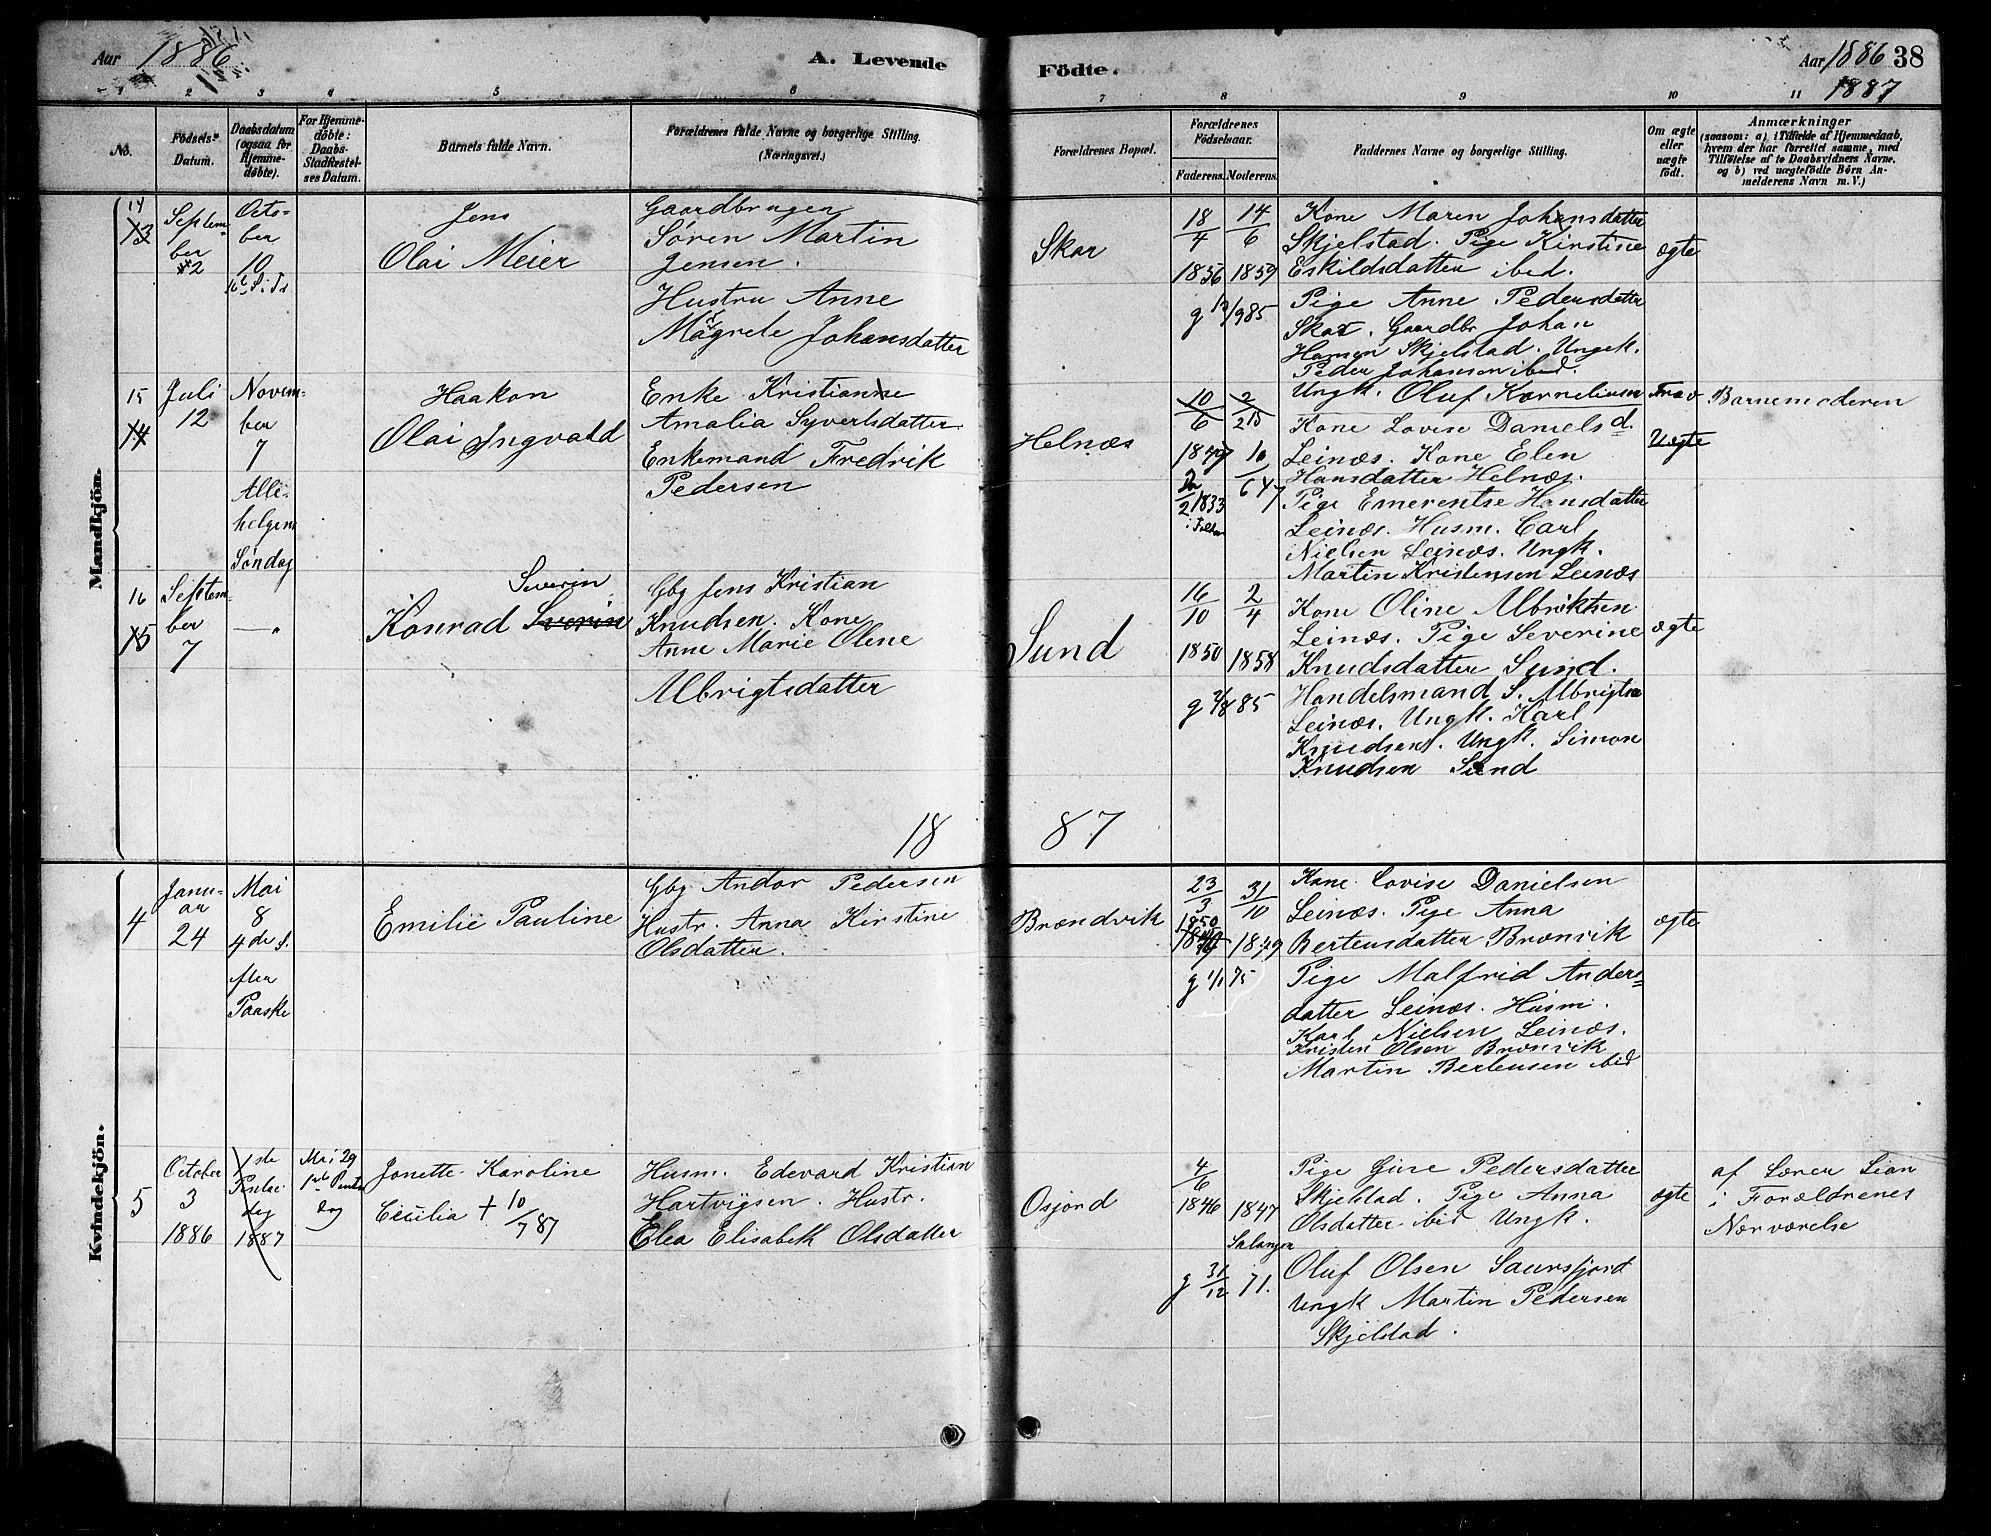 Aar 1886.
A. Levende
Födte.
Aar 1886 38
1887
1 2 3 4 5 6 7 8 9 10 11
No.
Födsels-
Datum.
Daabsdatum
(ogsaa for
Hjemme-
döbte).
For Hjemme-
döbte:
Daabs-
Stadfæstel-
ses Datum.
Barnets fulde Navn.
Forældrenes fulde Navne og borgerlige Stilling.
(Næringsvei.)
Forældrenes Bopæl.
Forældrenes
Födselsaar.
Faderens. Moderens.
Faddernes Navne og borgerlige Stilling.
Om ægte
eller
uægte
födt.
Anmærkninger
(saasom: a) i Tilfælde af Hjemmedaab,
hvem der har forrettet samme, med
Tilföielse af to Daabsvidners Navne.
og b) ved uægtefödte Börn An-
melderens Navn m. V.)
Mandkjön.
14
13
Septem-
ber
2
Octo-
ber
10
Jens
Olai Meier
Gaardbrugen
Søren Martin
Jensen.
Hustru Anne
Magrete Johansdatter
Skar
18/4 14/6
1856 1859
g 985
Kone Maren Johansdatter
Skjelstad. Pige Kirstine
Eskildsdatter ibed.
Pige Anne Pedersdatter
Skar. Gaardbr Johan
Hansen Skjelstad. Ungk.
Peder Johansen ibed.
ægte
15
14
Juli
12
Novem-
ber
7
Alle-
helgens
Søndag
Haakon
Olai Ingvald
Enke Kristianne
Amalia Syvertsdatter
Enkemand Fredrik
Pedersen
Helnæs
10/6
1849 10
6 47
2 1833
Ungk. Oluf Korneliusen
Kone Lovise Daniels d.
Leinæs. Kone Elen
Hansdatter Helnæs.
Pige Emerentse Hansdatter
Leinæs. Husm. Carl
Nielsen Leinæs. Ungk.
Martin Kristensen Leinæs
Uægte
Barnemoderen
16
15
Septem-
ber
7
— "
Severin
Konrad Severin
Gbg Jens Kristian
Knudsen. Kone
Anne Marie Olene
Albrigtsdatter
Sund
16/10 2/4
1850 1858
g 2/8 85
Kone Oline Albriktsen
Leinæs. Pige Severine
Knudsdatter Sund.
Handelsmand S. Albrigtsen
Leinæs. Ungk. Karl
Knudsen. Ungk. Simon
Knudsen Sund
ægte
18 87
Kvindekjön.
4
Janu-
ar
24
Mai
8
4de S.
efter
Paaske
Emilie Pauline
Gbg Andor Pedersen
Hustr. Anna Kirstine
Olsdatter.
Brændvik
23/3 31/10
1850
1849
g 1/1 75
Kone Lovise Danielsen
Leinæs. Pige Anna
Bertensdatter Brænvik
Pige Malfrid Anders-
datter Leinæs. Husm.
Karl Nielsen Leinæs.
Kristen Olsen Brænvik
Martin Bertensen ibid
ægte
5
October
3
1886
1ste
Pintse
dag
1887
Mai 29
1ste Pintse
dag
Jonette Karoline
Cecilia + 10/7 87
Husm. Edevard Kristian
Hartvigsen. Hustr.
Elea Elisabeth Olsdatter
Osjord
4/6
1846 1847
Salangen
g 31/12 71.
Pige Gine Pedersdatter
Skjelstad. Pige Anna
Olsdatter ibid Ungk.
Oluf Olsen Saursfjord
Ungk Martin Pedersen
Skjelstad.
ægte
af Lærer Lian
i Forældrenes
Nærværelse